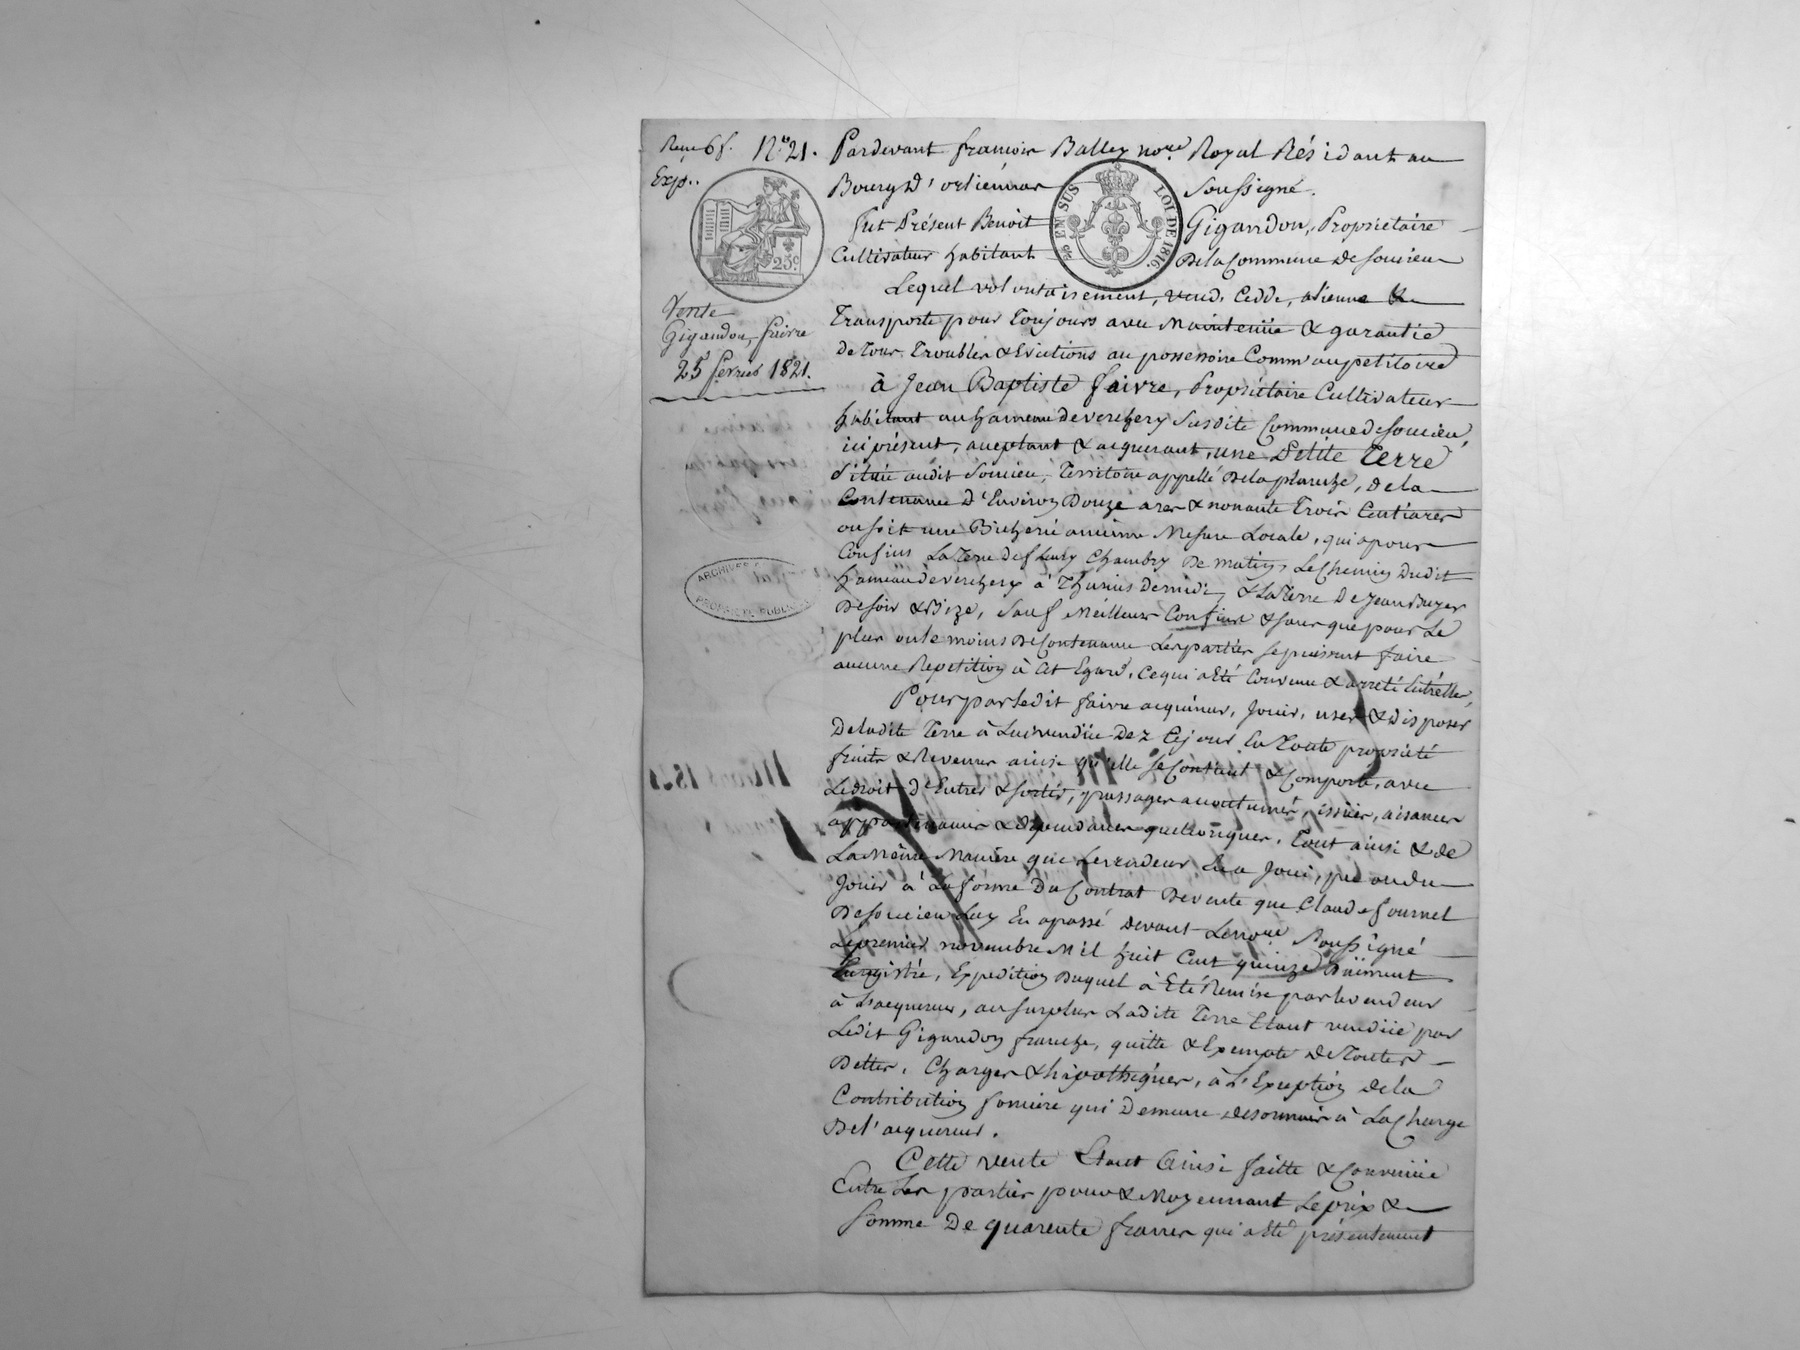 Reçu 6 f. N.ro 21.
Exp..
25 c.
25 EN SUS
LOI DE 1816.
Vente
Gigandon, faivre
25 fevrier 1821.
ARCHIVES
PUBLIC
Pardevant françois Balley no.re Royal Résidant au
Bourg D'orliénnas Soussigné.
Fut Présent Benoit Gigandon, Propriétaire
Cultivateur habitant Dela Commune de Soucieu
Lequel volontairement, vend, Cedde, alienne &
Transporte pour Toujours avec Maintenüe & garantie
De Tous Troubles & Evictions au possessoire Comm'au petitoire
à Jean Baptiste faivre, Propriétaire Cultivateur
habitant au hameau de verchery Susdite Commune de Soucieu,
ici présent, aceptant & acquerant, une Petite Terre
Située audit Soucieu, Territoire appellé Dela planche, de la
Contenance D'Environ Douze ares & nonante Trois Centiares
ou soit une Bicherée ancienne Mesure Locale, qui a pour
Confins La Terre de fleury Chambry De matin, Le Chemin Dudit
hameau de verchery à Thurins De midi, & La Terre De Jean
De soir & Bize, Sauf Meilleurs Confins & sans que pour Le
plus ou le moins De Contenance Les parties se puissent faire
aucune Repetition à Cet Egard, Ce qui a Eté Convenu & arreté Entr'elles,
Pour par Ledit faivre acquéreur, Jouir, user & disposer
De ladite Terre à Lui vendüe Dez Ce jour En Toute propriété
fruits & Revenus ainsi qu'elle se Contient & Comporte, avec
Le droit D'Entrer & sortir, passages accoutumés, issües, aisances
appartenances & Dépendances quelconques, Tout ainsi & de
La Même Manière que Le vendeur En a Joui, pu ou du
Jouir à La forme Du Contrat De vente que Claude fournel
De Soucieu Luy En a passé devant Le no.re Soussigné
Le premier novembre Mil huit Cent quinze Düement
Enregistré, Expedition Duquel à Eté Remise par le vendeur
à L'acquereur, au surplus Ladite Terre Etant vendüe par
Ledit Gigandon franche, quitte & Exempte de Toutes
Dettes, Charges & hipothéques, à L'Exeption de la
Contribution fonciere qui Demeure desormais à La Charge
De l'acquereur.
Cette vente Etant Ainsi faitte & Convenüe
Entre Les parties pour & Moyennant Le prix &
Somme De quarente francs qui a Eté présentement